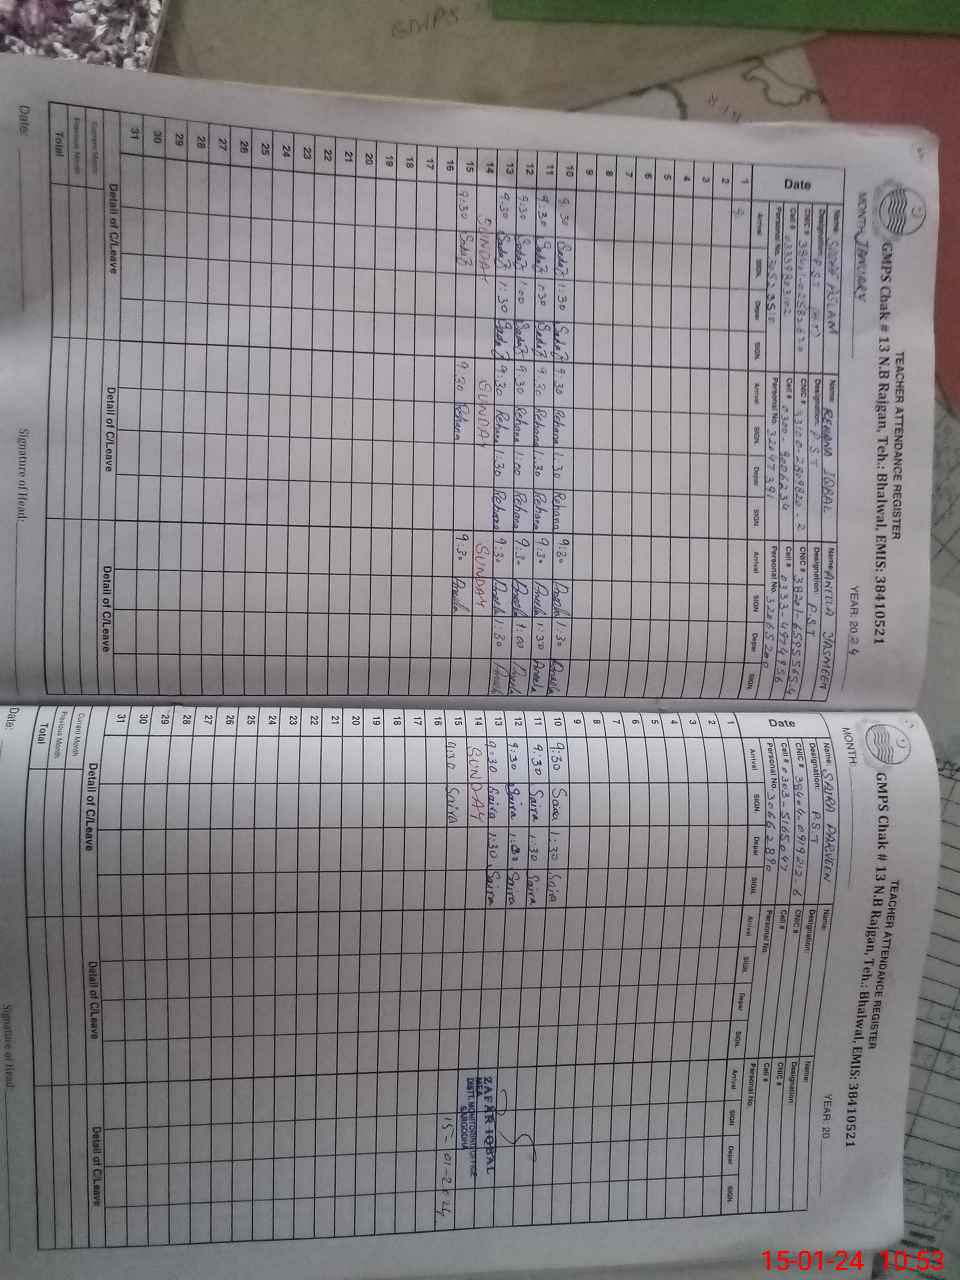 GMPS
TEACHER ATTENDANCE REGISTER
GMPS Chak # 13 N.B Rajgan, Teh.: Bhalwal, EMIS: 38410521
MONTH JANUARY YEAR: 2024
Name: ASLAM Name: REHANA IQBAL Name: ANEELA YASMEEN
Designation: P.S.T Designation: P.S.T Designation: P.S.T
CNIC # CNIC # CNIC #
Cell # Cell # 0300-9006234 Cell # 0333-4974956
Personal No. Personal No. 32047391 Personal No. 32065200
Date Arrival SIGN. Depar SIGN. Arrival SIGN. Depar SIGN. Arrival SIGN Depar SIGN.
1 9
2
3
4
5
6
7
8
9
10 9:30 Sadaf 1:30 Sadaf 9:30 Rehana 1:30 Rehana 9:30 Aneela 1:30 Aneela
11 9:30 Sadaf 1:30 Sadaf 9:30 Rehana 1:30 Rehana 9:30 Aneela 1:30 Aneela
12 9:30 Sadaf 1:00 Sadaf 9:30 Rehana 1:00 Rehana 9:30 Aneela 1:00 Aneela
13 9:30 Sadaf 1:30 Sadaf 9:30 Rehana 1:30 Rehana 9:30 Aneela 1:30 Aneela
14 SUNDAY SUNDAY SUNDAY
15 9:30 Sadaf 9:30 Rehana 9:30 Aneela
16
17
18
19
20
21
22
23
24
25
26
27
28
29
30
31
Detail of C/Leave Detail of C/Leave Detail of C/Leave
Current Month
Previous Month
Total
Date: Signature of Head:
TEACHER ATTENDANCE REGISTER
GMPS Chak # 13 N.B Rajgan, Teh.: Bhalwal, EMIS: 38410521
MONTH: YEAR: 20
Name: SAIRA PARVEEN Name: Name:
Designation: P.S.T Designation: Designation:
CNIC # 38404-0919212-6 CNIC # CNIC #
Cell # 0303-5165097 Cell # Cell #
Personal No. 30662890 Personal No. Personal No.
Date Arrival SIGN. Depar SIGN. Arrival SIGN. Depar SIGN. Arrival SIGN Depar SIGN.
1
2
3
4
5
6
7
8
9
10 9:30 Saira 1:30 Saira
11 9:30 Saira 1:30 Saira
12 9:30 Saira 1:00 Saira
13 9:30 Saira 1:30 Saira
14 SUNDAY
15 9:30 Saira
16
17
18
19
20
21
22
23
24
25
26
27
28
29
30
31
ZAFAR IQBAL
MEA
DISTT. MONITORING OFFICE
SARGODHA
15-01-2024
Detail of C/Leave Detail of C/Leave Detail of C/Leave
Current Month
Previous Month
Total
Date: Signature of Head:
15-01-24 10:53